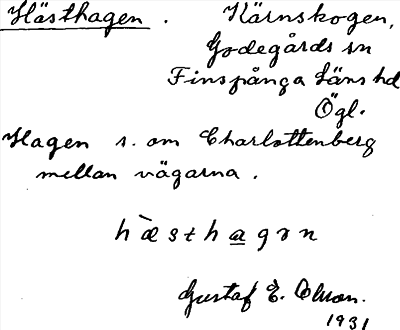 Hästhagen . Kärnskogen,
Godegårds sn
Finspånga läns hd
Ögl.
Hagen s. om Charlottenberg
mellan vägarna .
hæ̀sthagən
Gustaf E. Olson.
1931